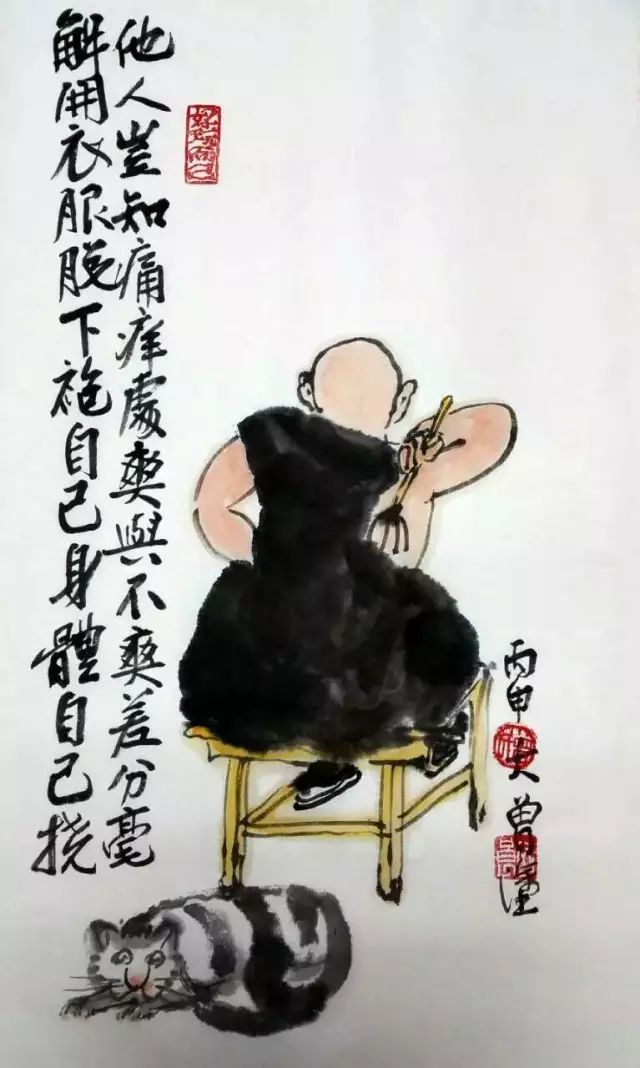 他人豈知痛痒處爽與不爽差分毫
解開衣服脱下袍自己身體自己挠
好玩而已
丙申